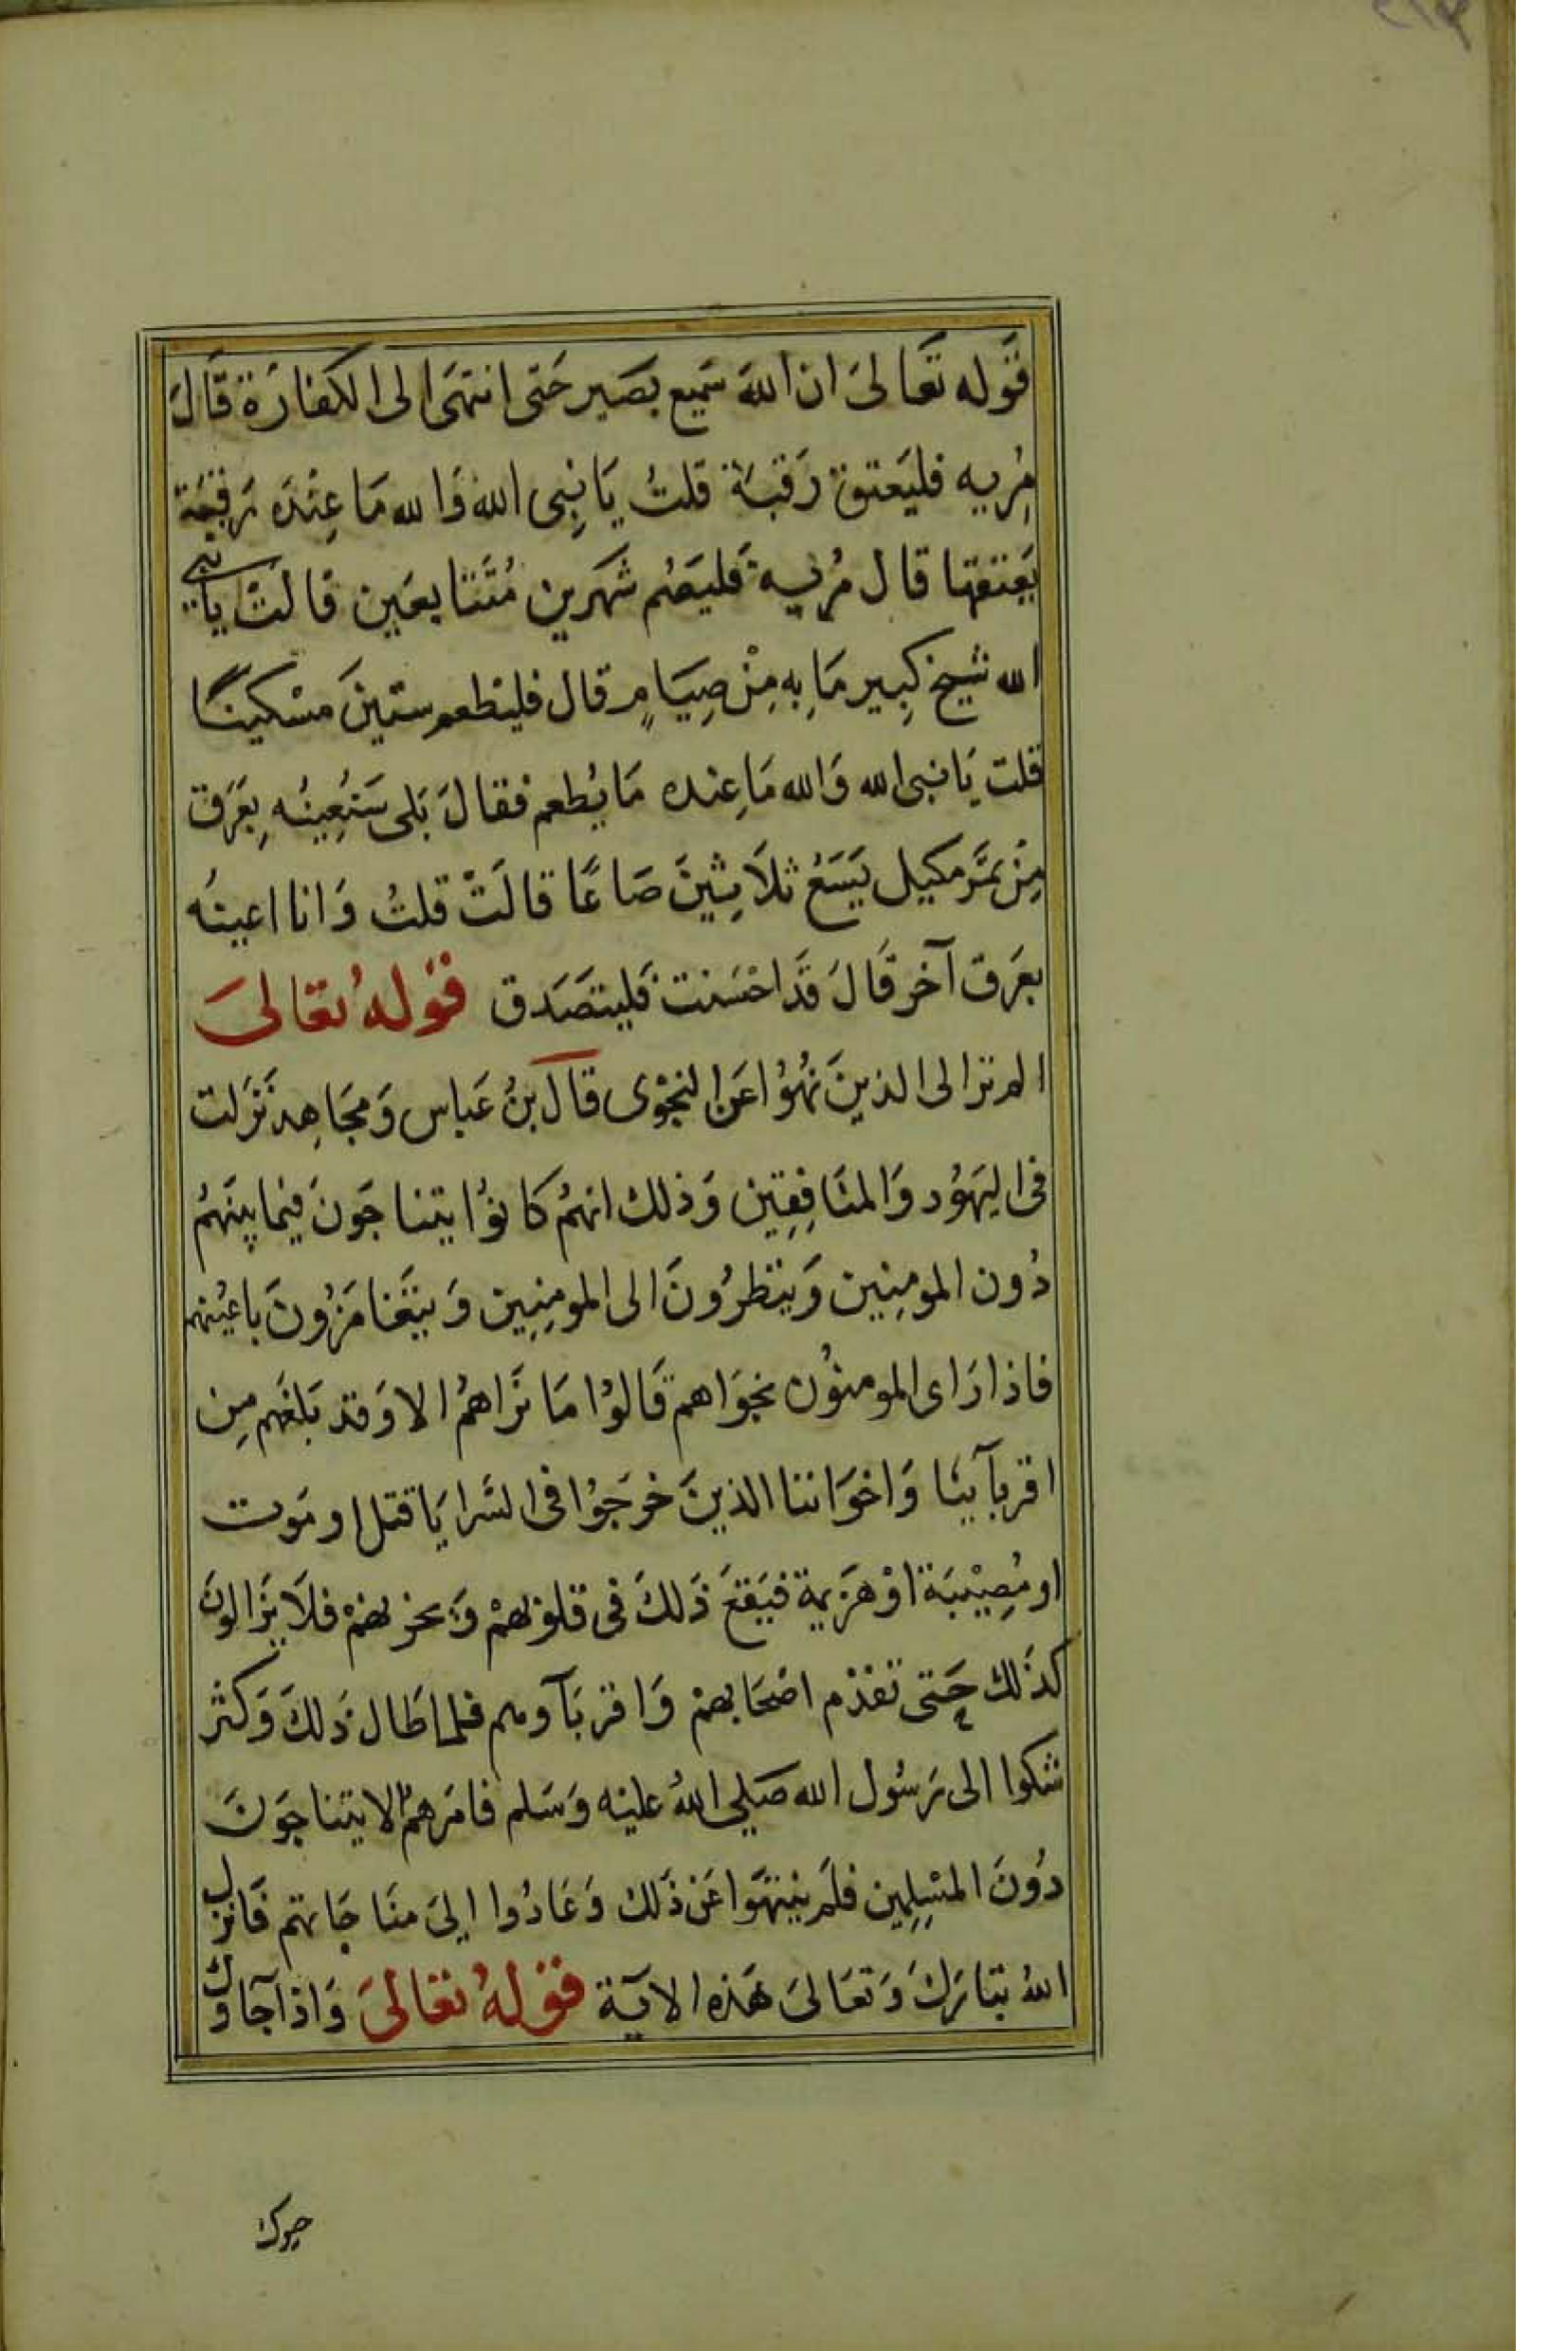 قوله تعالى ان الله سميع بصير حتى انتهى الى الكفارة قال
مريه فليعتق رقبة قلت يا نبى الله والله ما عنده رقبة
يعتقها قال مريه فليصم شهرين متتابعين قالت يا نبى
الله شيخ كبير ما به من صيام قال فليطعم ستين مسكينا
قلت يا نبى الله والله ما عنده ما يطعم فقال بلى سنعينه بعرق
من تمر مكيل يسع ثلاثين صاعا قالت قلت وانا اعينه
بعرق آخر قال قد احسنت فليتصدق قوله تعالى
الم تر الى الذين نهوا عن النجوى قال بن عباس ومجاهد نزلت
فى اليهود والمنافقين وذلك انهم كانوا يتناجون فيما بينهم
دون المومنين وينظرون الى المومنين ويتغامزون باعينهم
فاذا راى المومنون نجواهم قالوا ما نراهم الا وقد بلغهم من
اقربآينا واخواننا الذين خرجوا فى السرايا قتل او موت
او مصيبة او هزيمة فيقع ذلك فى قلوبهم ويحزنهم فلا يزالون
كذلك حتى تقدم اصحابهم واقربآوهم فلما طال ذلك وكثر
شكوا الى رسول الله صلي الله عليه وسلم فامرهم الا يتناجون
دون المسلمين فلم ينتهوا عن ذلك وعادوا الى مناجاتهم فانزل
الله تبارك وتعالى هذه الاية قوله تعالى واذا جاوك
حيوك